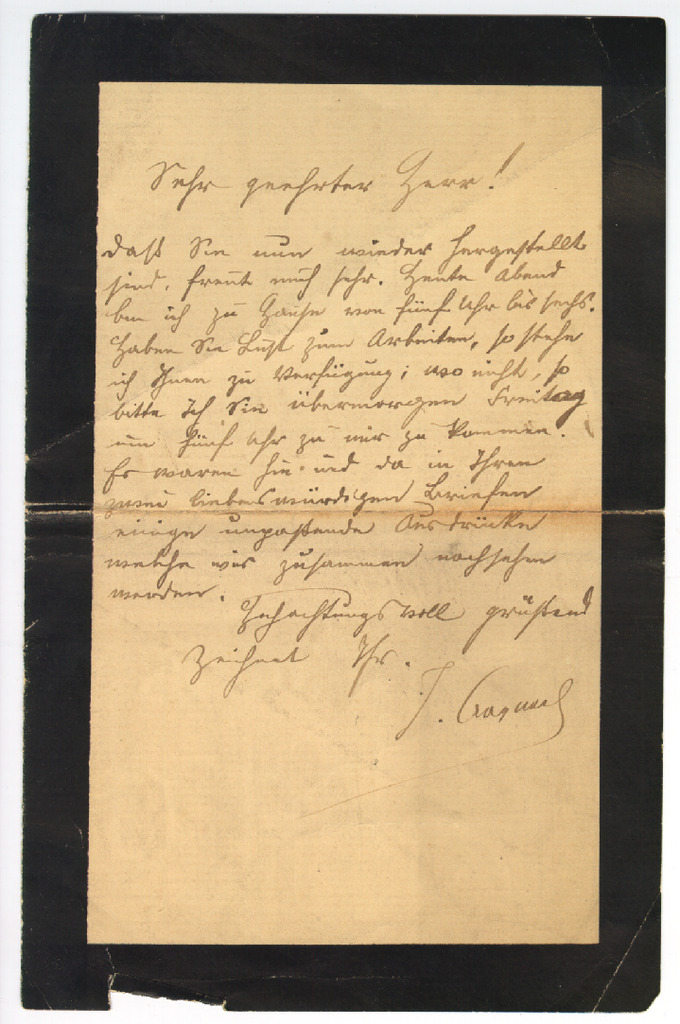 Sehr geehrter Herr!
daß Sie nun wieder hergestellt
sind, freut mich sehr. Heute Abend
bin ich zu Hause von fünf Uhr bis sechs.
Haben Sie Lust zum Arbeiten, so stehe
ich Ihnen zu Verfügung; wo nicht, so
bitte Ich Sie übermorgen Freitag
um fünf Uhr zu mir zu kommen.
Es waren hie und da in Ihren
zwei liebenswürdigen Briefen
einige unpaßende Ausdrücke
welche wir zusammen nachsehen
werden.
Hochachtungsvoll grüßend
zeichnet Ihr.
J.